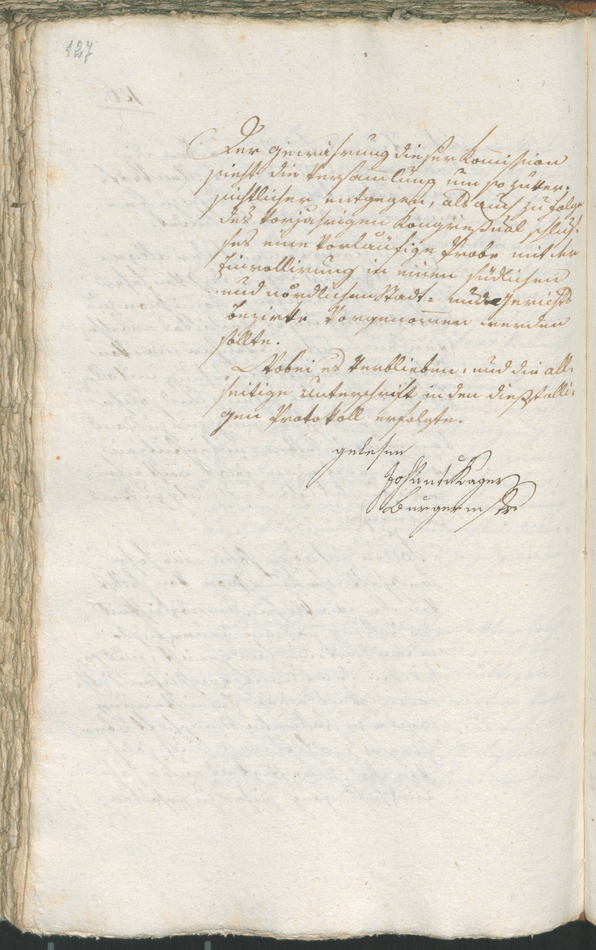 127
Der gewährung dieser Kom̅ission
sieht die Versam̅lung um so zuver-
sichtlicher entgegen, als auch zu folge
des vorjährigen Kongressual schlus-
ses eine vorläufige Probe mit der
Zinrollirung in einen südlichen
und nördlichen Stadt- und Gerichts
bezirke vorgenom̅en werden
sollte.
Wobei es verblieben, und die all-
seitige unterschrift in den dießfälli-
gen Protokoll erfolgte.
gelesen
Joh Kager
Burgermstr